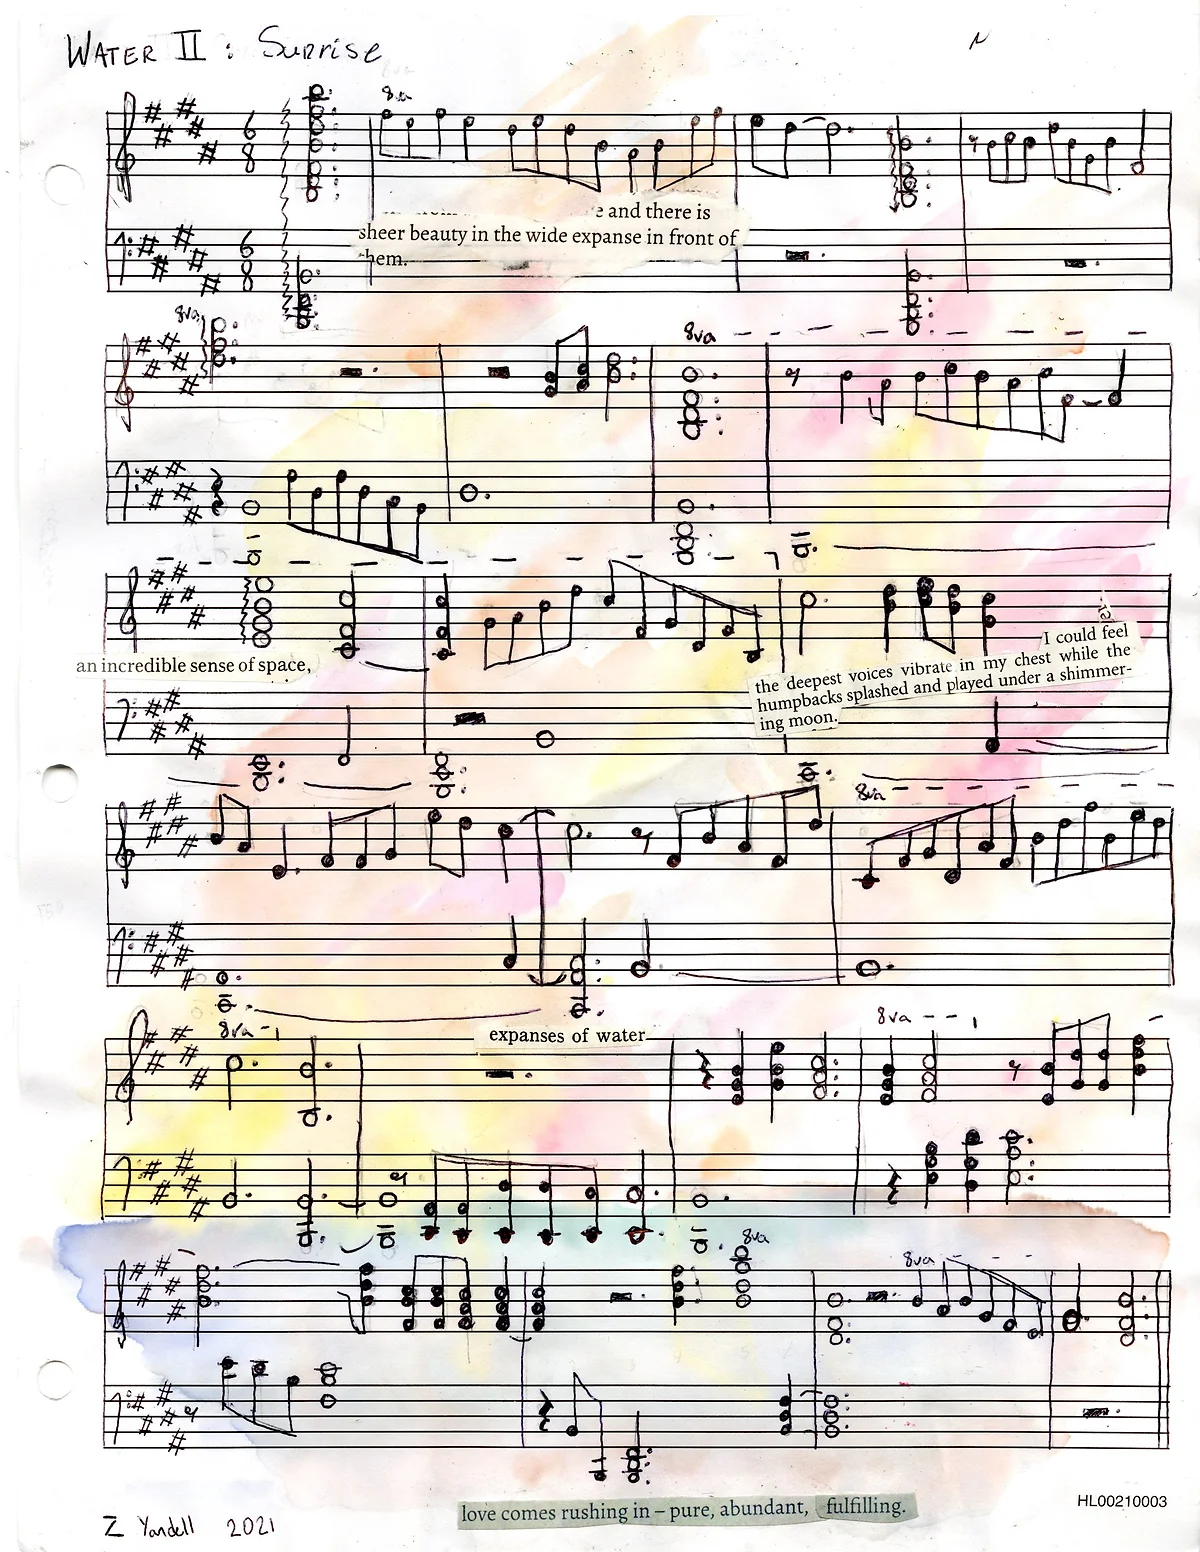 WATER II : Sunrise
8va
6
8
e and there is
sheer beauty in the wide expanse in front of
them.
6
8
8va
8va
an incredible sense of space,
I could feel
the deepest voices vibrate in my chest while the
humpbacks splashed and played under a shimmer-
ing moon.
8va
expanses of water
8va
8va
8va
8va
love comes rushing in – pure, abundant, fulfilling.
HL00210003
Z Yandell 2021